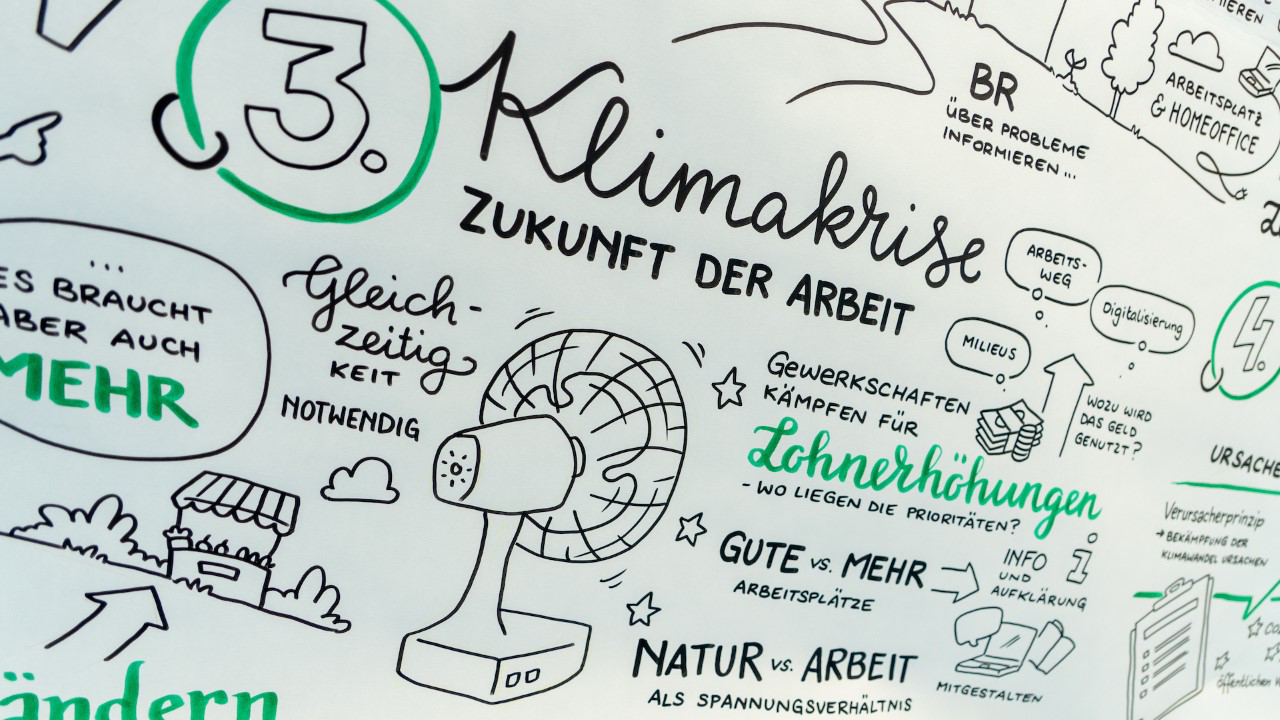 3.
Klimakrise
ZUKUNFT DER ARBEIT
BR
ÜBER PROBLEME
INFORMIEREN ...
ARBEITSPLATZ
& HOMEOFFICE
...
ES BRAUCHT
ABER AUCH
MEHR
Gleich-
zeitig
KEIT
NOTWENDIG
ändern
GEWERKSCHAFTEN
KÄMPFEN FÜR
Lohnerhöhungen
- WO LIEGEN DIE PRIORITÄTEN?
ARBEITS-
WEG
Digitalisierung
MILIEUS
WOZU WIRD
DAS GELD
GENUTZT?
GUTE vs. MEHR
ARBEITSPLÄTZE
INFO
UND
AUFKLÄRUNG
i
NATUR vs. ARBEIT
ALS SPANNUNGSVERHÄLTNIS
MITGESTALTEN
4.
URSACHE
Verursacherprinzip
→ BEKÄMPFUNG DER
KLIMAWANDEL URSACHEN
öffentlichen